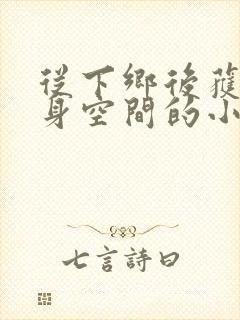 從下鄉後獲
身空間的小
七言詩曰